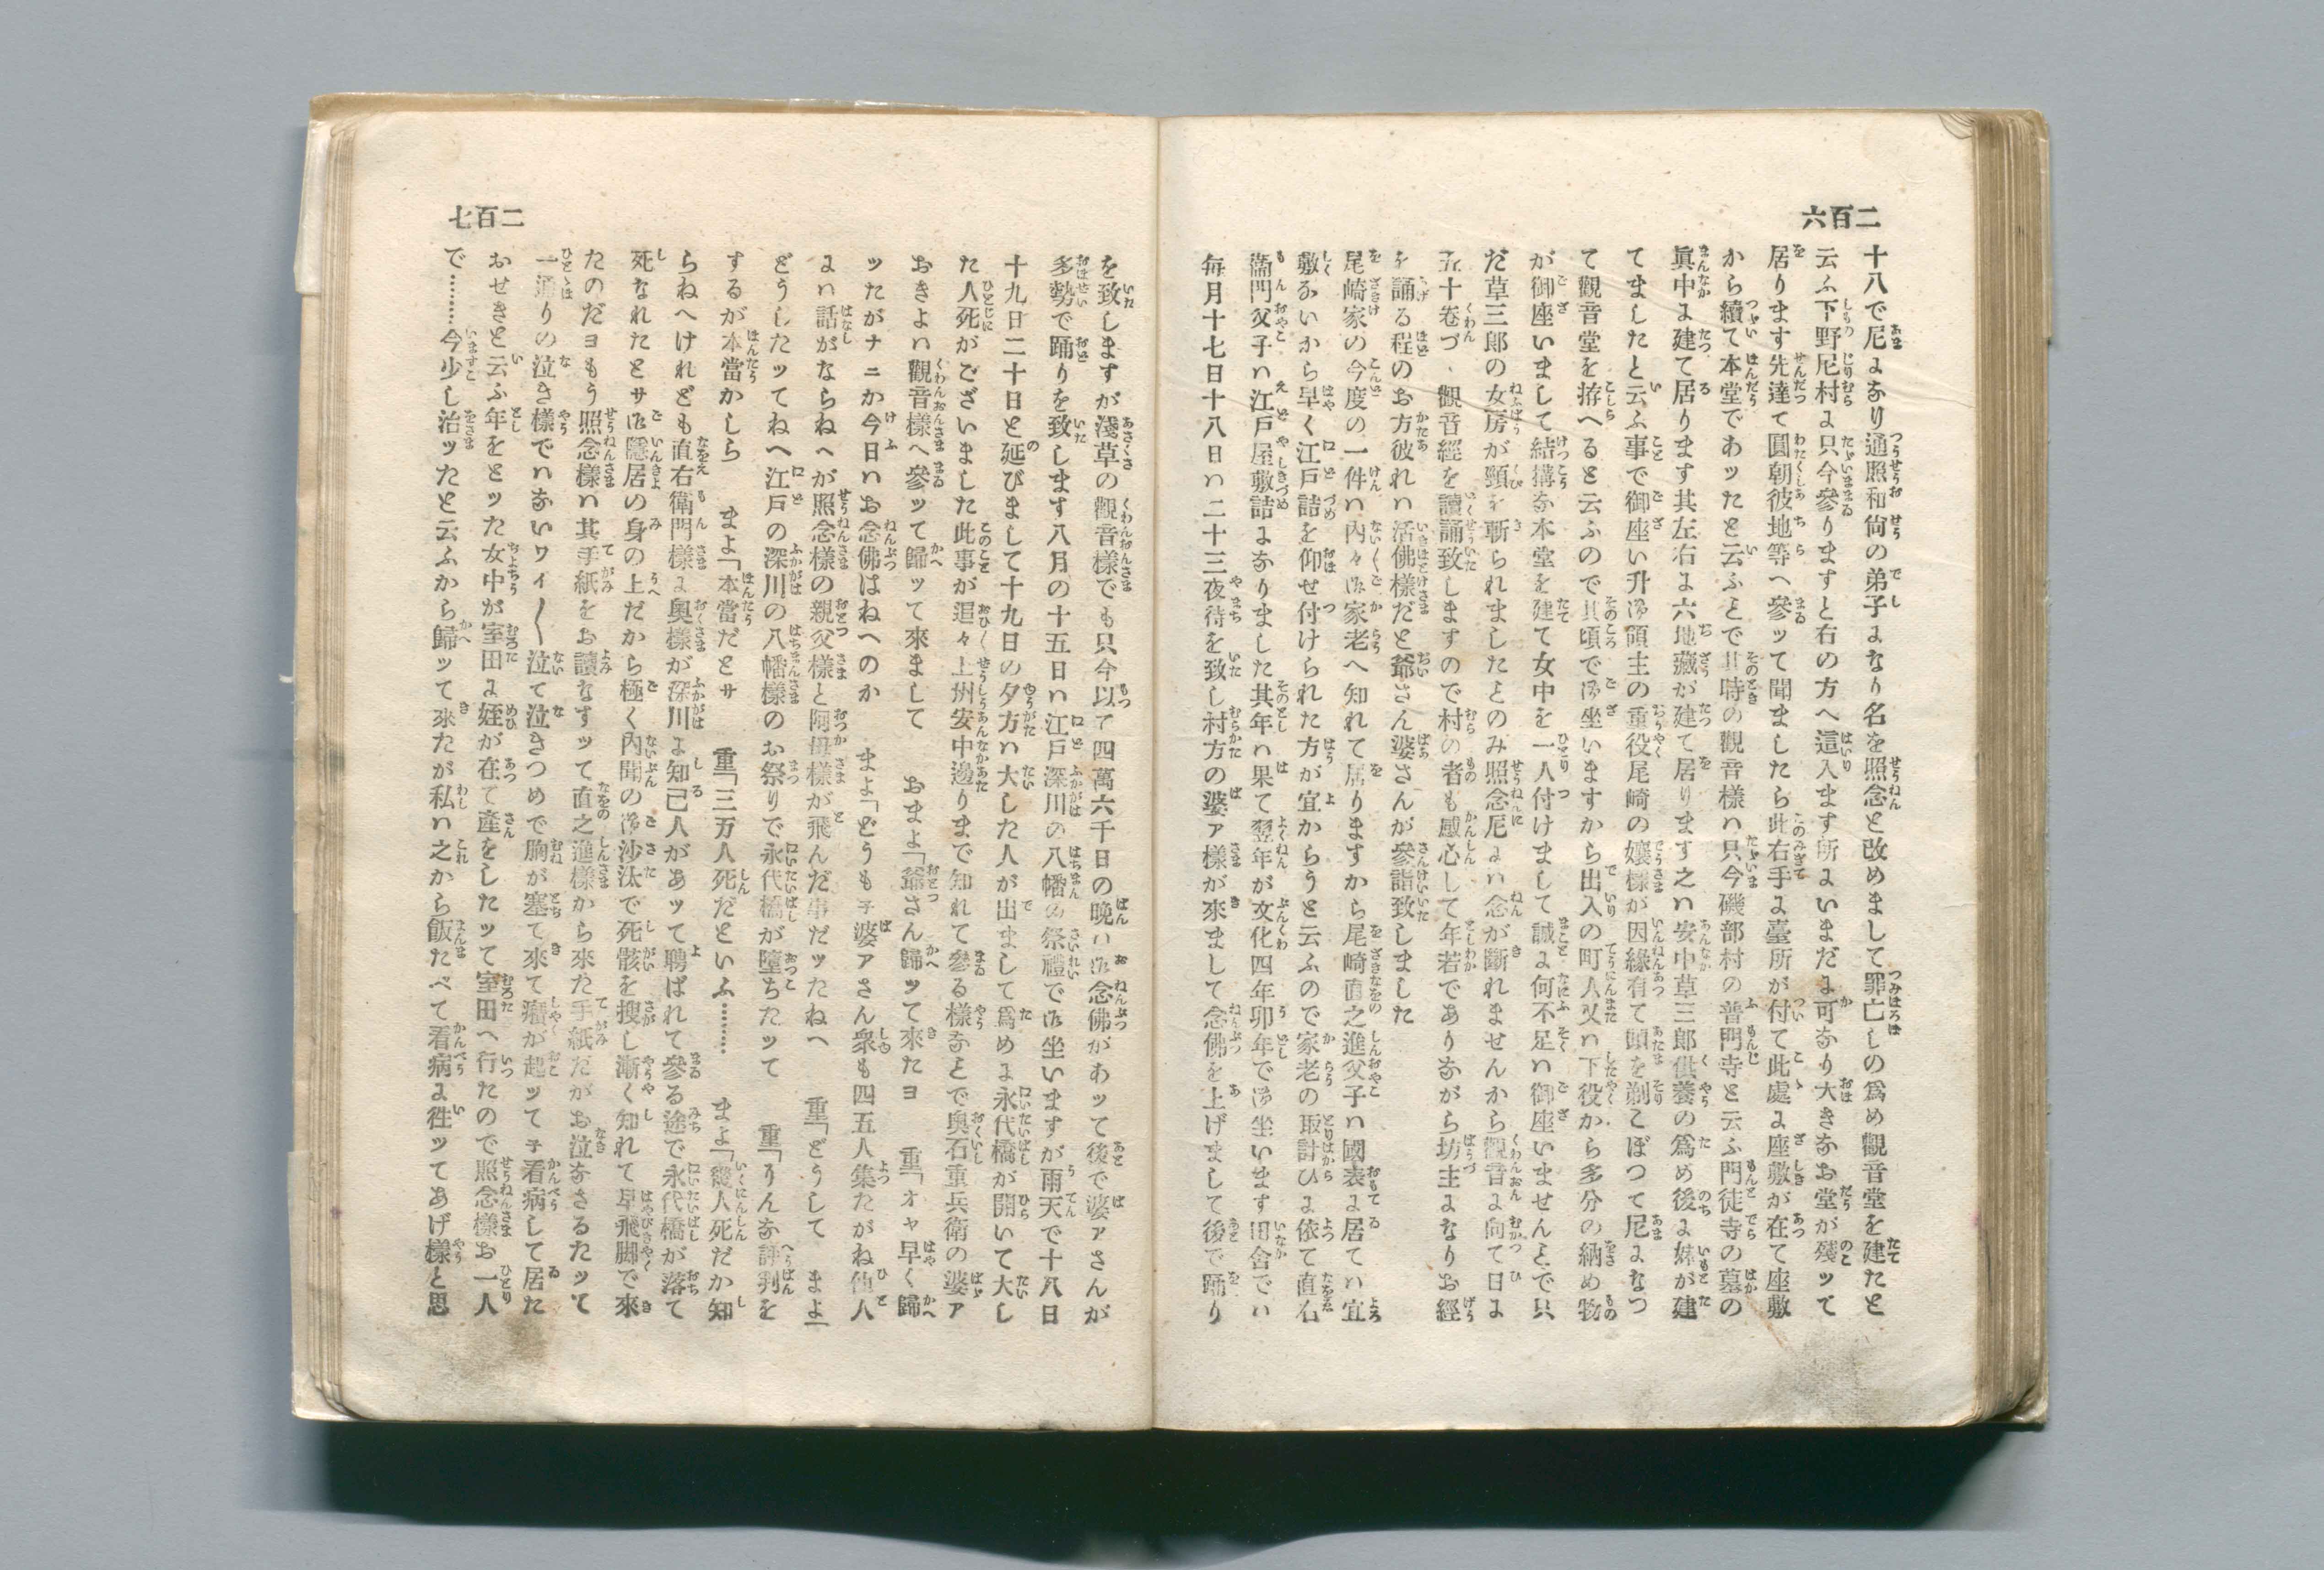 二百六
十八で尼になり通照和尙の弟子になり名を照念と改めまして罪亡しの爲め觀音堂を建たと
云ふ下野尻村に只今參りますと右の方へ這入ます所にいまだに可なり大きなお堂が殘ッて
居ります先達て圓朝彼地等へ參ッて聞ましたら此右手に臺所が付て此處に座敷が在て座敷
から續て本堂であッたと云ふことで其時の觀音樣ハ只今磯部村の普門寺と云ふ門徒寺の墓の
眞中に建て居ります其左右に六地藏が建て居ります之ハ安中草三郎供養の爲め後に妹が建
てましたと云ふ事で御座い升御領主の重役尾崎の孃樣が因緣有て頭を剃こぼつて尼になつ
て觀音堂を拵へると云ふので其頃で御坐いますから出入の町人又ハ下役から多分の納め物
が御座いまして結搆な本堂を建て女中を一人付けまして誠に何不足ハ御座いませんとで只
だ草三郎の女房が頸を斬られましたとのみ照念尼にハ念が斷れませんから觀音に向て日に
五十卷づゝ觀音經を讀誦致しますので村の者も感心して年若でありながら坊主になりお經
を誦る程のお方彼れハ活佛樣だと爺さん婆さんが參詣致しました
尾崎家の今度の一件ハ內々御家老へ知れて居りますから尾崎直之進父子ハ國表に居てハ宜
敷ないから早く江戸詰を仰せ付けられた方が宜からうと云ふので家老の取計ひに依て直右
衞門父子ハ江戸屋敷詰になりました其年ハ果て翌年が文化四年卯年で御坐います田舎でハ
毎月十七日十八日ハ二十三夜待を致し村方の婆ァ樣が來まして念佛を上げまして後で踊り
二百七
を致しますが淺草の觀音樣でも只今以て四萬六千日の晩ハ御念佛があッて後で婆ァさんが
多勢で踊りを致します八月の十五日ハ江戸深川の八幡の祭禮で御坐いますが雨天で十八日
十九日二十日と延びまして十九日の夕方ハ大した人が出まして爲めに永代橋が開いて大し
た人死がございました此事が追々上州安中邊りまで知れて參る樣なとで奧石重兵衛の婆ァ
おきよハ觀音樣へ參ッて歸ッて來まして　おまよ「爺さん歸ッて來たヨ　重「オヤ早く歸
ッたがナニか今日ハお念佛はねへのか　まよ「どうも子婆アさん衆も四五人集たがね他人
にハ話がならねへが照念樣の親父樣と阿母樣が飛んだ事だッたねへ　重「どうして　まよ「
どうしたッてねへ江戸の深川の八幡樣のお祭りで永代橋が墮ちたッて　重「りんな評判を
するが本當かしら　まよ「本當だとサ　重「三万人死だといふ………　まよ「幾人死だか知
らねへけれども直右衛門樣に奧樣が深川に知己人があッて聘ばれて參る途で永代橋が落て
死なれたとサ御隱居の身の上だから極く內聞の御沙汰で死骸を搜し漸く知れて早飛脚で來
たのだヨもう照念樣ハ其手紙をお讀なすッて直之進樣から來た手紙だがお泣なさるたッて
一通りの泣き樣でハないワイ〳〵泣て泣きつめで胸が塞て來て癪が起ッて子看病して居た
おせきと云ふ年をとッた女中が室田に姪が在て產をしたッて室田へ行たので照念樣お一人
で………今少し治ッたと云ふから歸ッて來たが私ハ之から飯たべて看病に徃ッてあげ樣と思